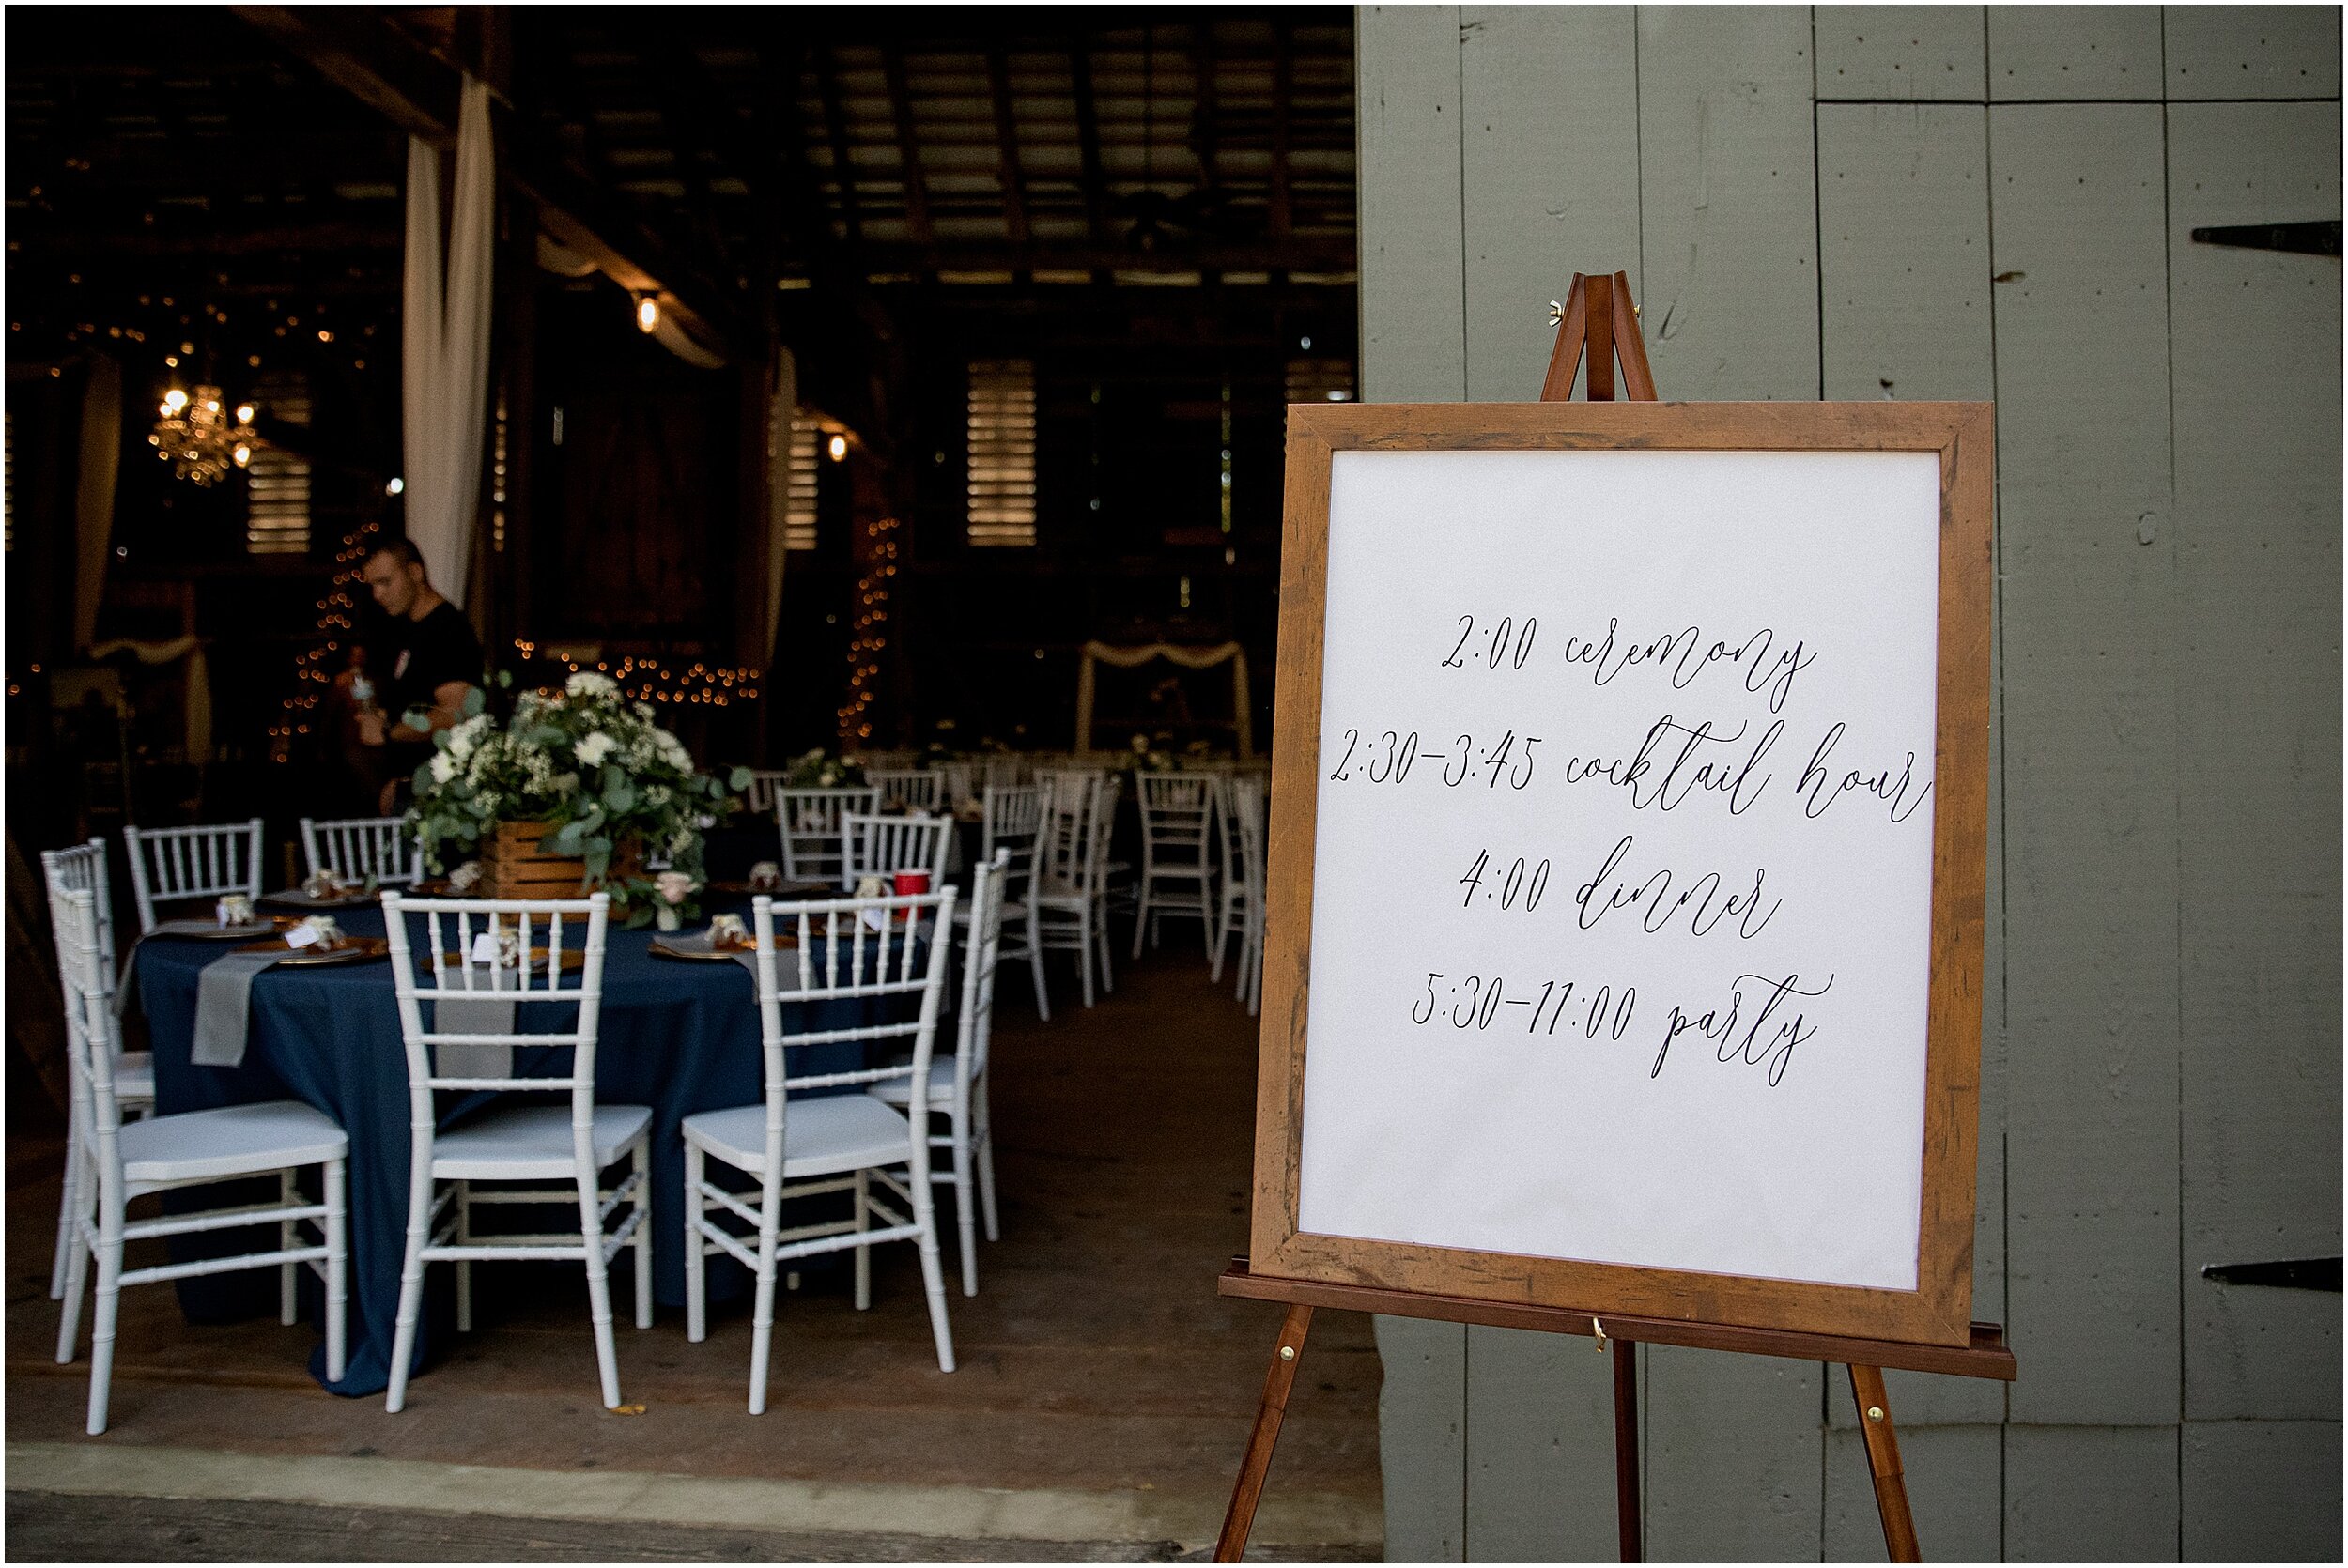 2:00 ceremony
2:30-3:45 cocktail hour
4:00 dinner
5:30-11:00 party